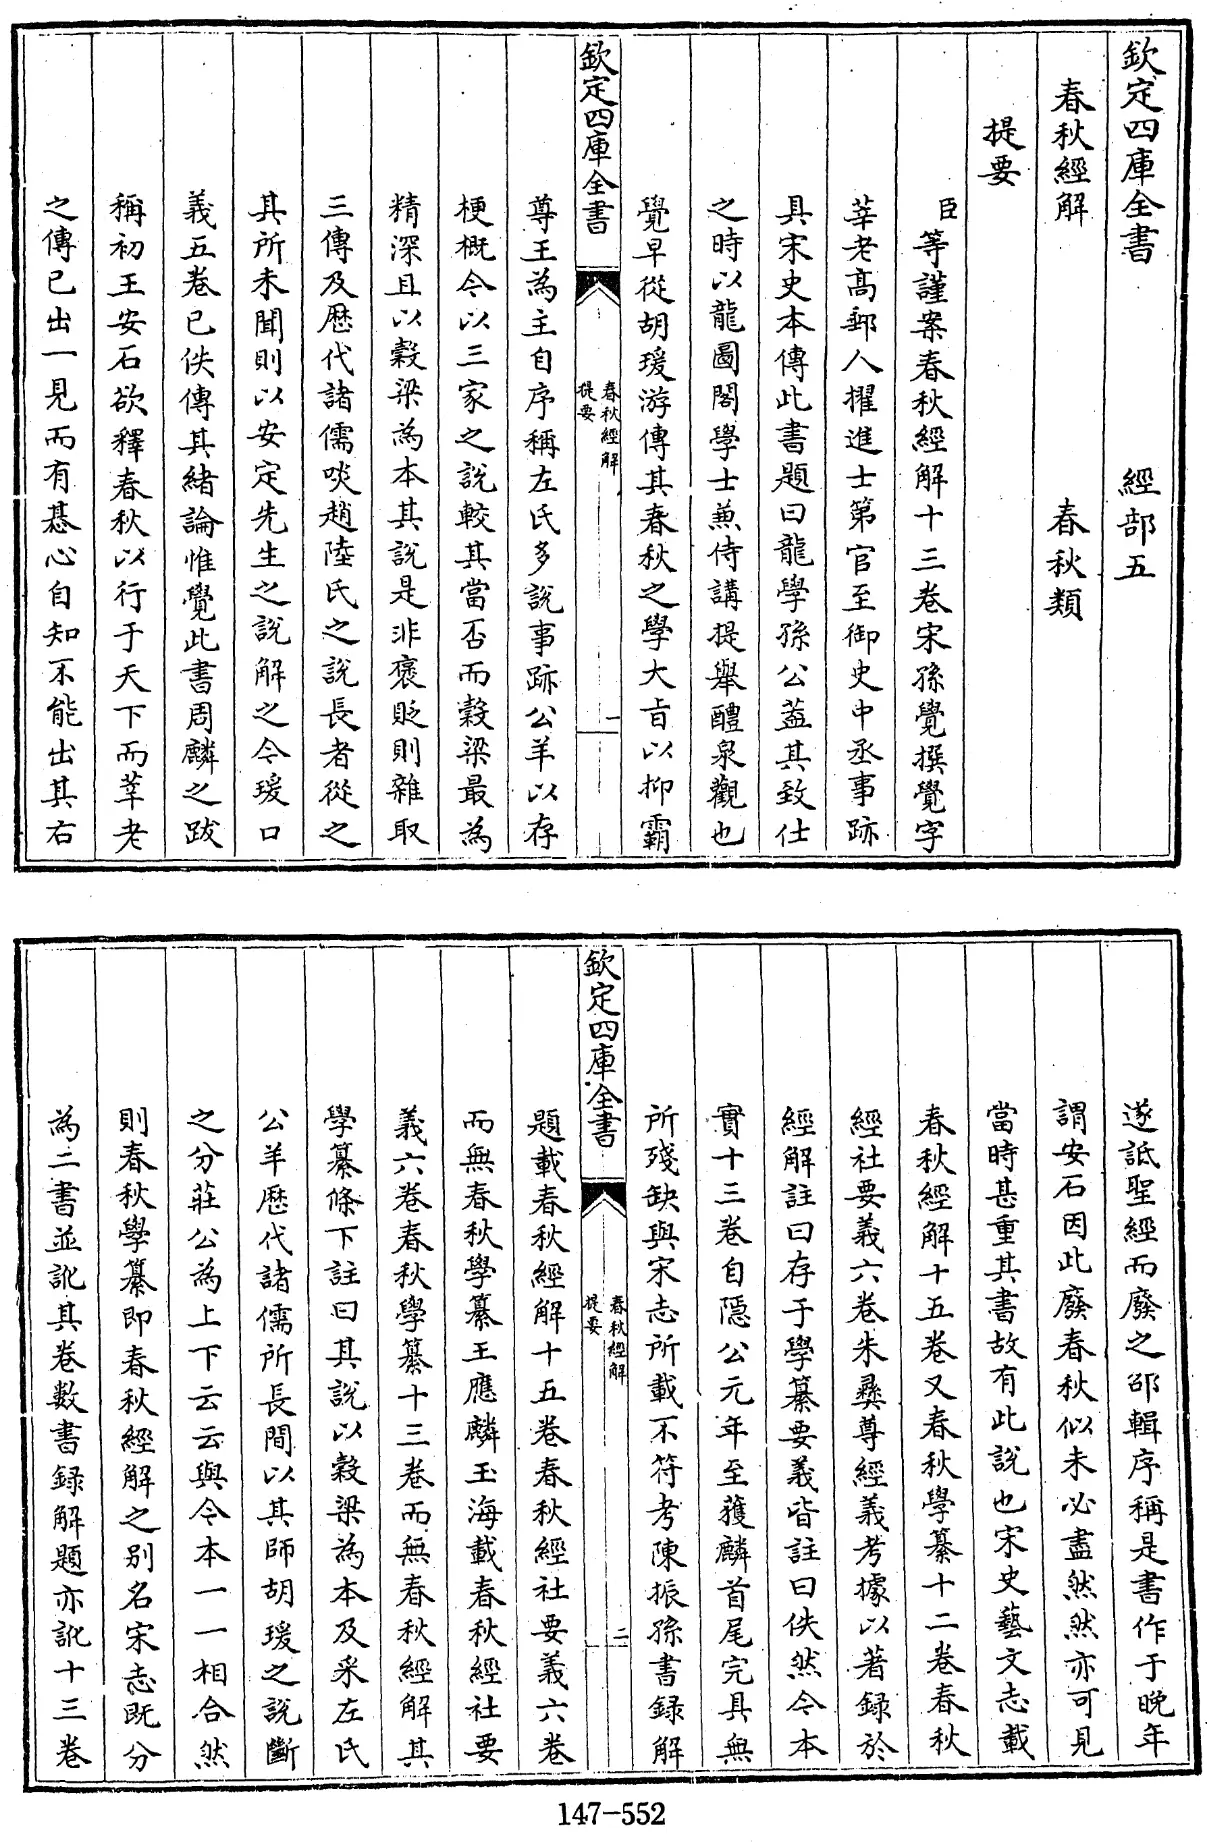 欽定四庫全書　經部五
春秋經解　春秋類
提要
臣等謹案春秋經解十三卷宋孫覺撰覺字
莘老高郵人擢進士第官至御史中丞事跡
具宋史本傳此書題曰龍學孫公蓋其致仕
之時以龍圖閣學士兼侍講提舉醴泉觀也
覺早從胡瑗游傳其春秋之學大旨以抑霸
欽定四庫全書
春秋經解
提要
一
尊王為主自序稱左氏多說事跡公羊以存
梗概今以三家之說較其當否而穀梁最為
精深且以穀梁為本其說是非褒貶則雜取
三傳及歴代諸儒啖趙陸氏之說長者從之
其所未聞則以安定先生之說解之今瑗口
義五卷已佚傳其緒論惟覺此書周麟之跋
稱初王安石欲釋春秋以行于天下而莘老
之傳已出一見而有惎心自知不能出其右
遂詆聖經而廢之邵輯序稱是書作于晚年
謂安石因此廢春秋似未必盡然然亦可見
當時甚重其書故有此說也宋史藝文志載
春秋經解十五卷又春秋學纂十二卷春秋
經社要義六卷朱彝尊經義考據以著録於
經解註曰存于學纂要義皆註曰佚然今本
實十三卷自隱公元年至獲麟首尾完具無
所殘缺與宋志所載不符考陳振孫書録解
欽定四庫全書
春秋經解
提要
二
題載春秋經解十五卷春秋經社要義六卷
而無春秋學纂王應麟玉海載春秋經社要
義六卷春秋學纂十三卷而無春秋經解其
學纂條下註曰其說以穀梁為本及采左氏
公羊歴代諸儒所長間以其師胡瑗之說斷
之分莊公為上下云云與今本一一相合然
則春秋學纂即春秋經解之別名宋志既分
為二書並訛其卷數書録解題亦訛十三卷
147-552